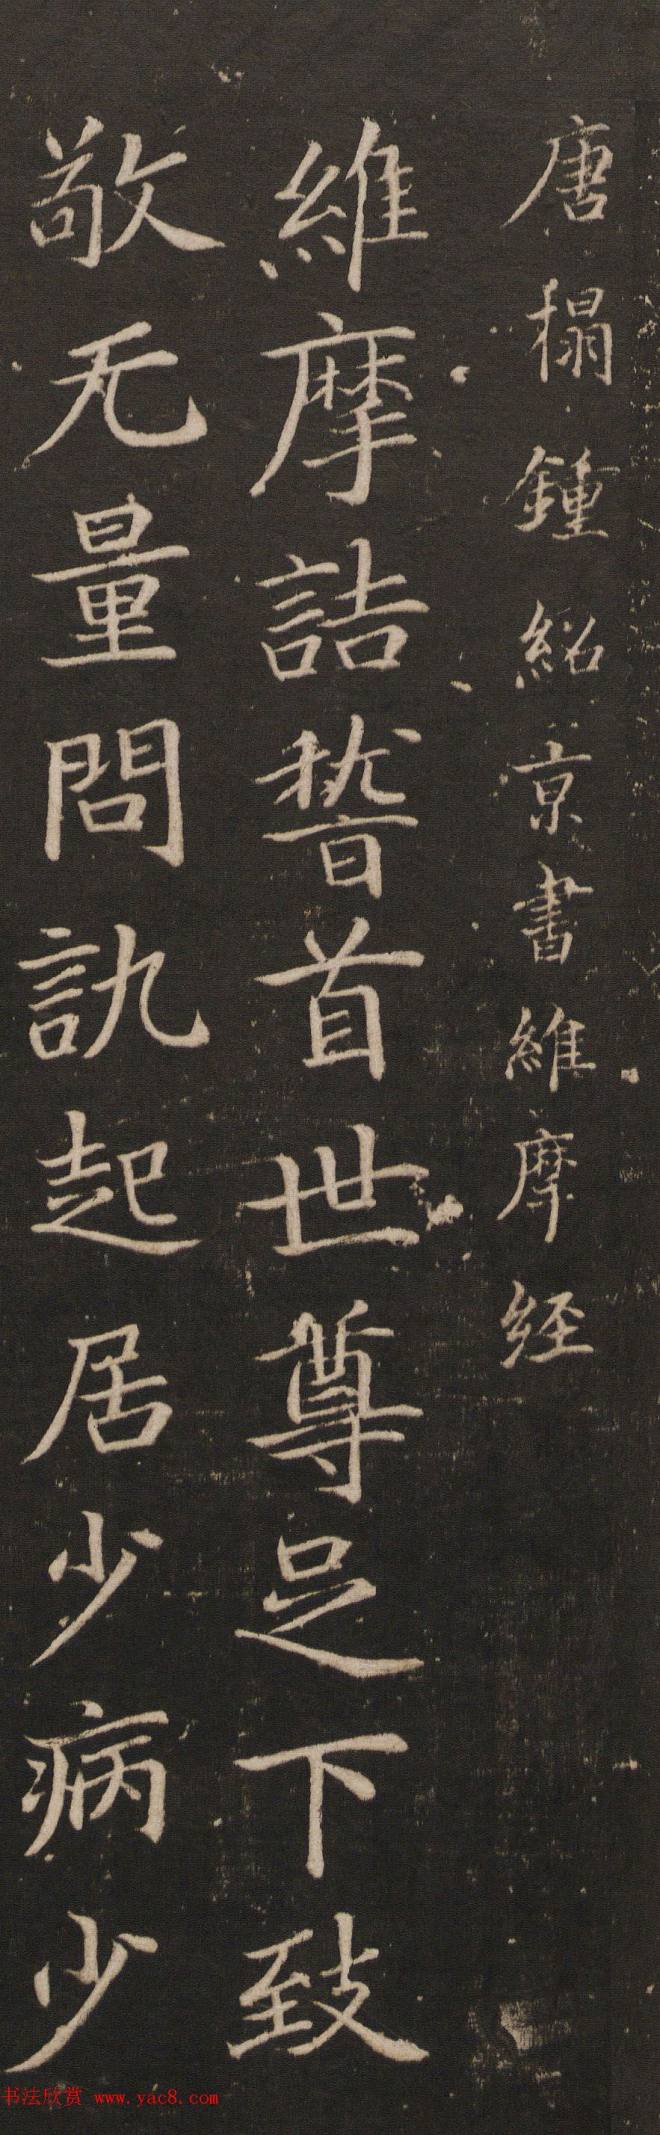 唐榻鍾紹京書維摩經
維摩詰稽首世尊足下致
敬无量問訊起居少病少
书法欣赏 www.yac8.com